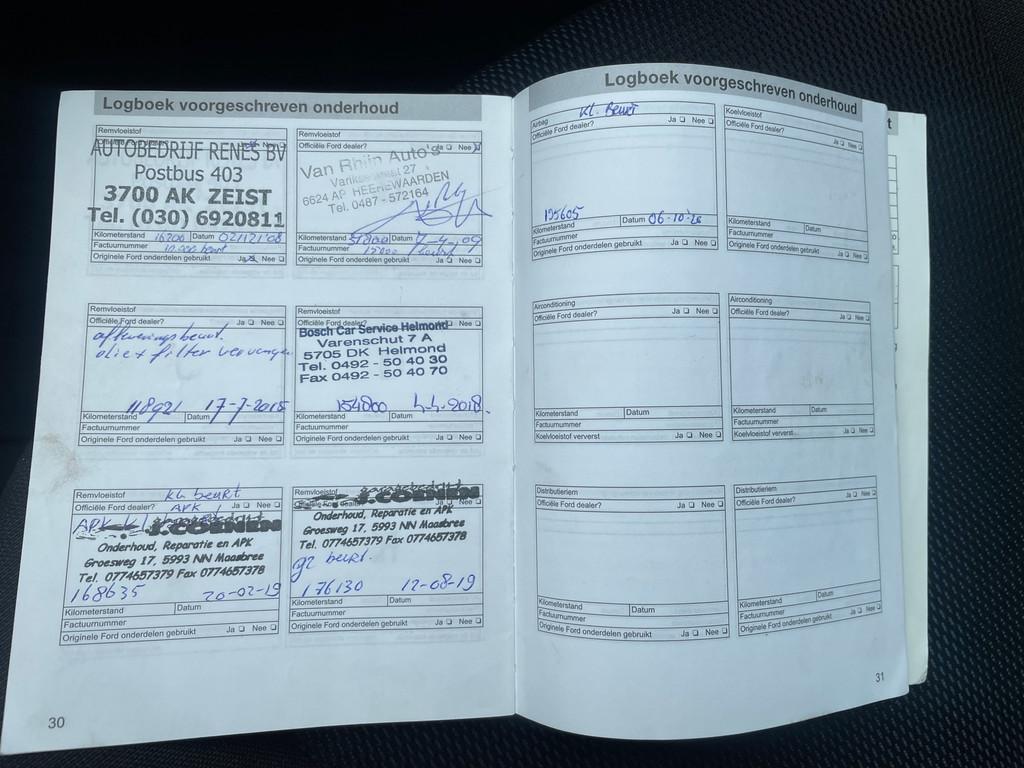 Logboek voorgeschreven onderhoud
Remvloeistof
Officiële Ford dealer? Ja Nee
AUTOBEDRIJF RENES BV
Postbus 403
3700 AK ZEIST
Tel. (030) 6920811
Kilometerstand 16200 Datum 02/12/'08
Factuurnummer
Originele Ford onderdelen gebruikt Ja Nee
Remvloeistof
Officiële Ford dealer? Ja Nee
Van Rhijn Auto's
6624 AP HEEREWAARDEN
Tel. 0487 - 572164
Kilometerstand Datum 7-4-'09
Factuurnummer
Originele Ford onderdelen gebruikt Ja Nee
Remvloeistof
Officiële Ford dealer? Ja Nee
afleveringsbeurt.
olie + filter vervangen
118921 17-7-2015
Kilometerstand Datum
Factuurnummer
Originele Ford onderdelen gebruikt Ja Nee
Remvloeistof
Officiële Ford dealer? Ja Nee
Bosch Car Service Helmond
Varenschut 7 A
5705 DK Helmond
Tel. 0492 - 50 40 30
Fax 0492 - 50 40 70
154800 4-4-2018.
Kilometerstand Datum
Factuurnummer
Originele Ford onderdelen gebruikt Ja Nee
Remvloeistof kl beurt
Officiële Ford dealer? APK Ja Nee
APK kl
J.COENEN
Onderhoud, Reparatie en APK
Groesweg 17, 5993 NN Maasbree
Tel. 0774657379 Fax 0774657378
168635 20-02-19
Kilometerstand Datum
Factuurnummer
Originele Ford onderdelen gebruikt Ja Nee
Remvloeistof
J.COENEN
Onderhoud, Reparatie en APK
Groesweg 17, 5993 NN Maasbree
Tel. 0774657379 Fax 0774657378
gr beurt.
176130 12-08-19
Kilometerstand Datum
Factuurnummer
Originele Ford onderdelen gebruikt Ja Nee
30
Logboek voorgeschreven onderhoud
Airbag kl. Beurt
Officiële Ford dealer? Ja Nee
195605 06-10-'20
Kilometerstand Datum
Factuurnummer
Originele Ford onderdelen gebruikt Ja Nee
Koelvloeistof
Officiële Ford dealer? Ja Nee
Kilometerstand Datum
Factuurnummer
Originele Ford onderdelen gebruikt Ja Nee
Airconditioning
Officiële Ford dealer? Ja Nee
Kilometerstand Datum
Factuurnummer
Koelvloeistof ververst Ja Nee
Airconditioning
Officiële Ford dealer? Ja Nee
Kilometerstand Datum
Factuurnummer
Koelvloeistof ververst Ja Nee
Distributieriem
Officiële Ford dealer? Ja Nee
Kilometerstand Datum
Factuurnummer
Originele Ford onderdelen gebruikt Ja Nee
Distributieriem
Officiële Ford dealer? Ja Nee
Kilometerstand Datum
Factuurnummer
Originele Ford onderdelen gebruikt Ja Nee
31